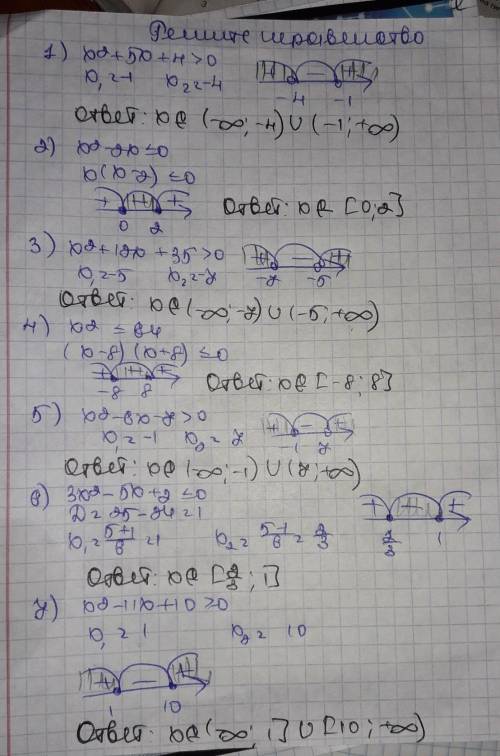 Решите неравенство
1) x2+5x+4>0
x1=-1 x2=-4 + - +
-4 -1
Ответ: x∈(-∞;-4)∪(-1;+∞)
2) x2-2x≤0
x(x-2)≤0
+ + +
0 2 Ответ: x∈[0;2]
3) x2+12x+35>0 + - +
x1=-5 x2=-7 -7 -5
Ответ: x∈(-∞;-7)∪(-5;+∞)
4) x2≤64
(x-8)(x+8)≤0
-8 8 Ответ: x∈[-8;8]
5) x2-6x-7>0 + - +
x1=-1 x2=7 -1 7
Ответ: x∈(-∞;-1)∪(7;+∞)
6) 3x2-5x+2≤0
D=25-24=1
x1=5+1/6=1 x2=5-1/6=2/3 2/3 1
Ответ: x∈[2/3;1]
7) x2-11x+10≥0
x1=1 x2=10
+ - +
1 10
Ответ: x∈(-∞;1]∪[10;+∞)